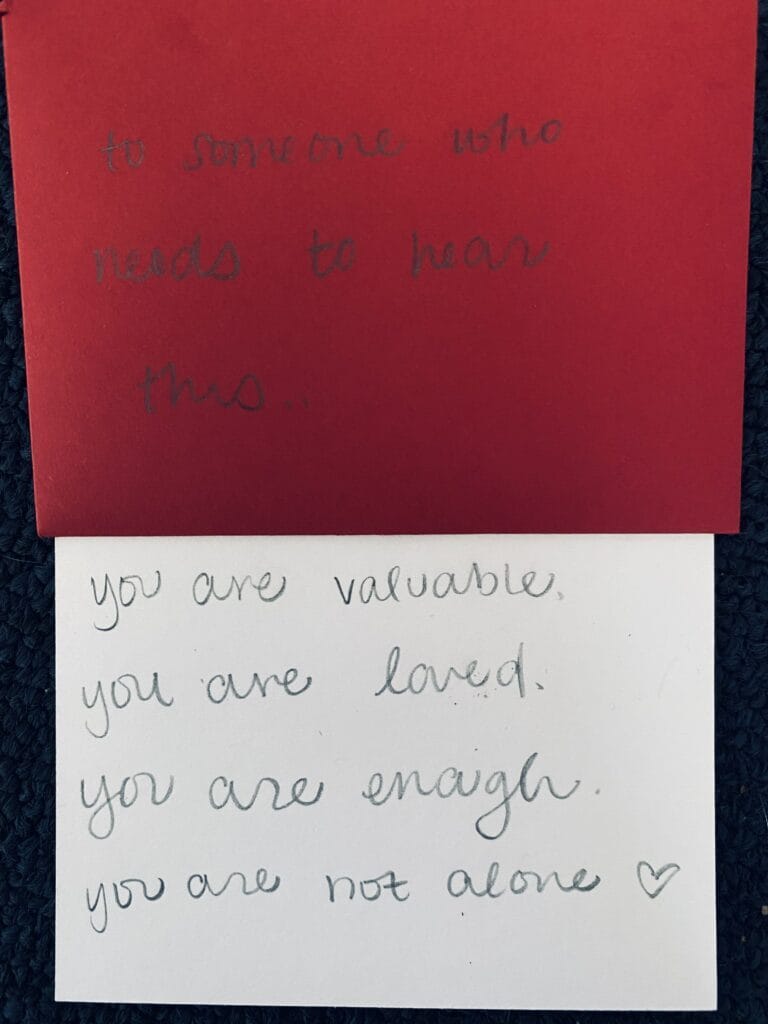 to someone who
needs to hear
this..
you are valuable.
you are loved.
you are enough.
you are not alone ♡